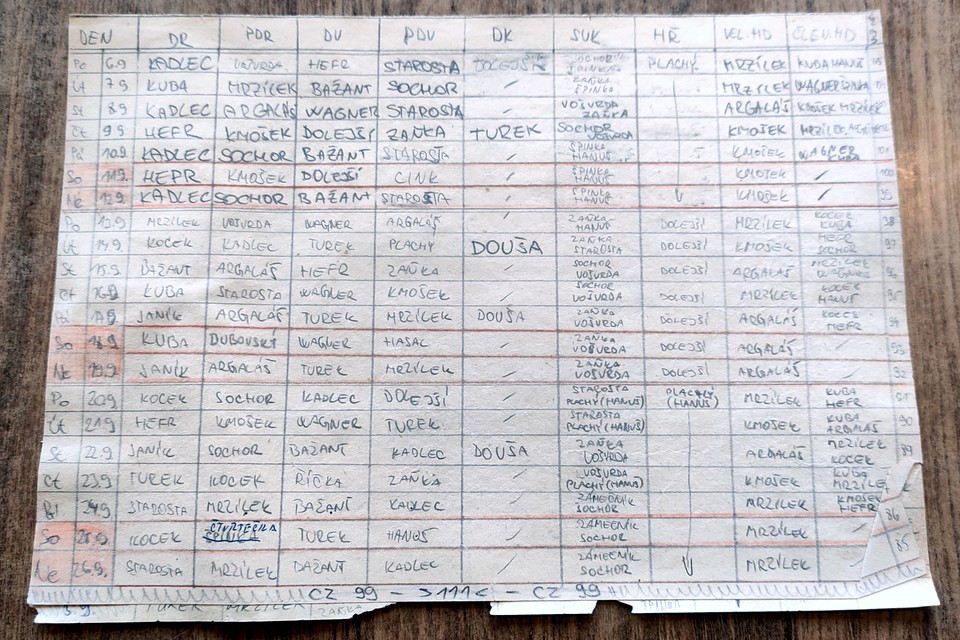 DEN DR PDR DU PDU DK SUK HŘ VEL.HD ČLEN.HD
Po 6.9 KADLEC VOŠVRDA HEFR STAROSTA DOLEJŠÍ SOCHOR ŠPINKA PLACHÝ MRZÍLEK KUBA HANUŠ
Út 7.9 KUBA MRZÍLEK BAŽANT SOCHOR / ZAŇKA ŠPINKA MRZÍLEK WAGNER
St 8.9 KADLEC ARGALÁŠ WAGNER STAROSTA / VOŠVRDA ZAŇKA ARGALÁŠ KMOŠEK MRZÍLEK
Čt 9.9 HEFR KMOŠEK DOLEJŠÍ ZAŇKA TUREK SOCHOR VOŠVRDA KMOŠEK MRZÍLEK
Pá 10.9 KADLEC SOCHOR BAŽANT STAROSTA / ŠPINKA HANUŠ KMOŠEK WAGNER KUBA
So 11.9 HEFR KMOŠEK DOLEJŠÍ CINK / ŠPINKA HANUŠ KMOŠEK / 100
Ne 12.9 KADLEC SOCHOR BAŽANT STAROSTA / ŠPINKA HANUŠ KMOŠEK / 99
Po 13.9 MRZÍLEK VOŠVRDA WAGNER ARGALÁŠ / ZAŇKA HANUŠ DOLEJŠÍ MRZÍLEK KOCEK KUBA 98
Út 14.9 KOCEK KADLEC TUREK PLACHÝ DOUŠA ZAŇKA STAROSTA DOLEJŠÍ KMOŠEK HEFR SOCHOR 97
St 15.9 BAŽANT ARGALÁŠ HEFR ZAŇKA / SOCHOR VOŠVRDA DOLEJŠÍ ARGALÁŠ MRZÍLEK WAGNER 96
Čt 16.9 KUBA STAROSTA WAGNER KMOŠEK / SOCHOR VOŠVRDA DOLEJŠÍ MRZÍLEK KOCEK HANUŠ 95
Pá 17.9 JANÍK ARGALÁŠ TUREK MRZÍLEK DOUŠA ZAŇKA VOŠVRDA DOLEJŠÍ ARGALÁŠ KOCEK HEFR 94
So 18.9 KUBA DUBOVSKÝ WAGNER HASAL / ZAŇKA VOŠVRDA DOLEJŠÍ ARGALÁŠ / 93
Ne 19.9 JANÍK ARGALÁŠ TUREK MRZÍLEK / ZAŇKA VOŠVRDA DOLEJŠÍ ARGALÁŠ / 92
Po 20.9 KOCEK SOCHOR KADLEC DOLEJŠÍ / STAROSTA PLACHÝ (HANUŠ) PLACHÝ (HANUŠ) MRZÍLEK KUBA HEFR 91
Út 21.9 HEFR KMOŠEK WAGNER TUREK / STAROSTA PLACHÝ (HANUŠ) KMOŠEK KUBA ARGALÁŠ 90
St 22.9 JANÍK SOCHOR BAŽANT KADLEC DOUŠA ZAŇKA VOŠVRDA ARGALÁŠ MRZÍLEK KOCEK 89
Čt 23.9 TUREK KOCEK ŘÍČKA ZAŇKA / VOŠVRDA PLACHÝ (HANUŠ) KMOŠEK KUBA MRZÍLEK
Pá 24.9 STAROSTA MRZÍLEK BAŽANT KADLEC / ZÁMEČNÍK SOCHOR MRZÍLEK KMOŠEK HEFR
So 25.9 KOCEK ČTVRTEČKA TUREK HANUŠ / ZÁMEČNÍK SOCHOR MRZÍLEK / 86
Ne 26.9. STAROSTA MRZÍLEK BAŽANT KADLEC / ZÁMEČNÍK SOCHOR MRZÍLEK / 85
CZ 99 - >111< - CZ 99
TUREK MRZÍLEK ZAŇKA